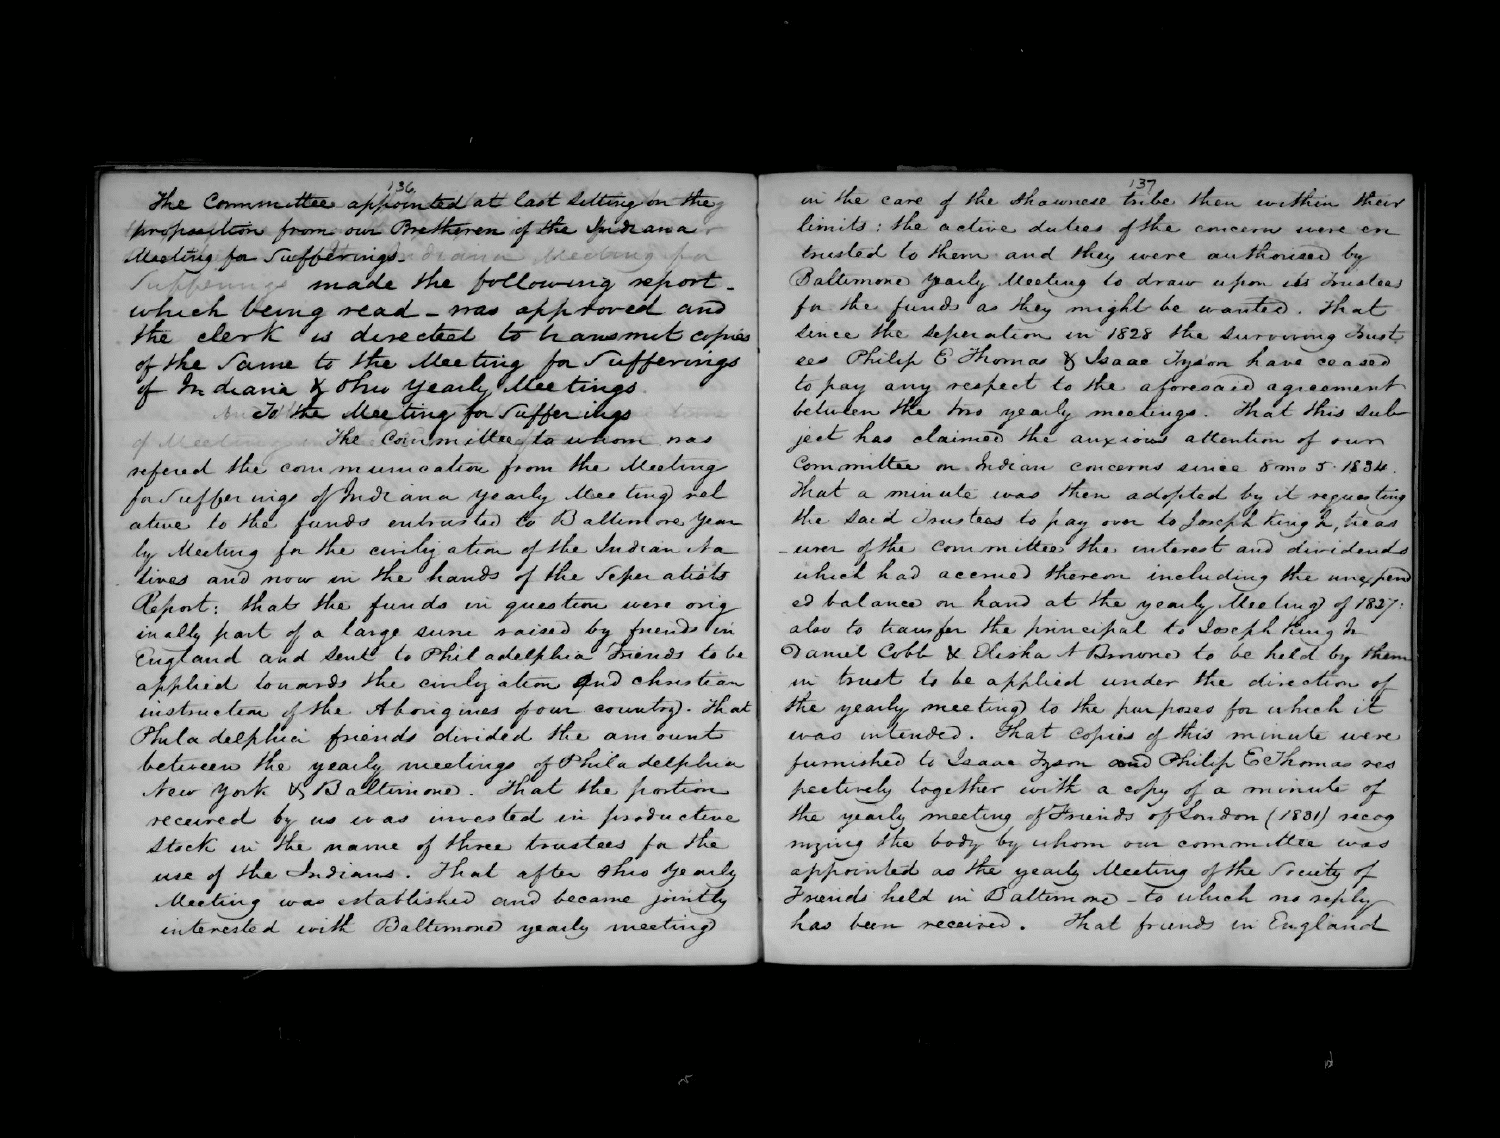 136
The Committee appointed at last Sitting on the
proposition from our Bretheren of the Indiana
Meeting for Suffferings
made the following report -
which being read - was approved and
the clerk is directed to transmit copies
of the Same to the Meeting for Sufferings
of Indiana & Ohio Yearly Meetings
To the Meeting for Sufferings
The Committee to whom was
refered the communication from the Meeting
for Sufferings of Indiana Yearly Meeting rel
ative to the funds entrusted to Baltimore Year
ly Meeting for the civilization of the Indian Na
tives and now in the hands of the Seperatists
Report: that the funds in question were orig
inally part of a large sum raised by friends in
England and sent to Philadelphia Friends to be
applied towards the civilization and christian
instruction of the Aborigines of our country. That
Philadelphia friends divided the amount
between the yearly meetings of Philadelphia
New York & Baltimore. That the portion
received by us was invested in productive
Stock in the name of three trustees for the
use of the Indians. That after Ohio Yearly
Meeting was established and became jointly
interested with Baltimore yearly meeting
137
in the care of the Shawnese tribe then within their
limits: the active duties of the concern were en
trusted to them and they were authorised by
Baltimore Yearly Meeting to draw upon its Trustees
for the funds as they might be wanted. That
since the seperation in 1828 the surviving Trust
ees Philip E Thomas & Isaac Tyson have ceased
to pay any respect to the aforesaid agreement
between the two yearly meetings. That this sub
ject has claimed the anxious attention of our
Committee on Indian concerns since 8 mo 5. 1834.
That a minute was then adopted by it requesting
the said Trustees to pay over to Joseph King Jr, treas
-urer of the Committee the interest and dividends
which had accrued thereon including the unexpend
ed balance on hand at the yearly Meeting of 1827:
also to transfer the principal to Joseph King Jr
Daniel Cobb & Elisha N Browne to be held by them
in trust to be applied under the direction of
the yearly meeting to the purposes for which it
was intended. That copies of this minute were
furnished to Isaac Tyson and Philip E Thomas res
pectively together with a copy of a minute of
the yearly meeting of Friends of London (1831) recog
nizing the body by whom our committee was
appointed as the yearly Meeting of the Society of
Friends held in Baltimore - to which no reply
has been received. That friends in England